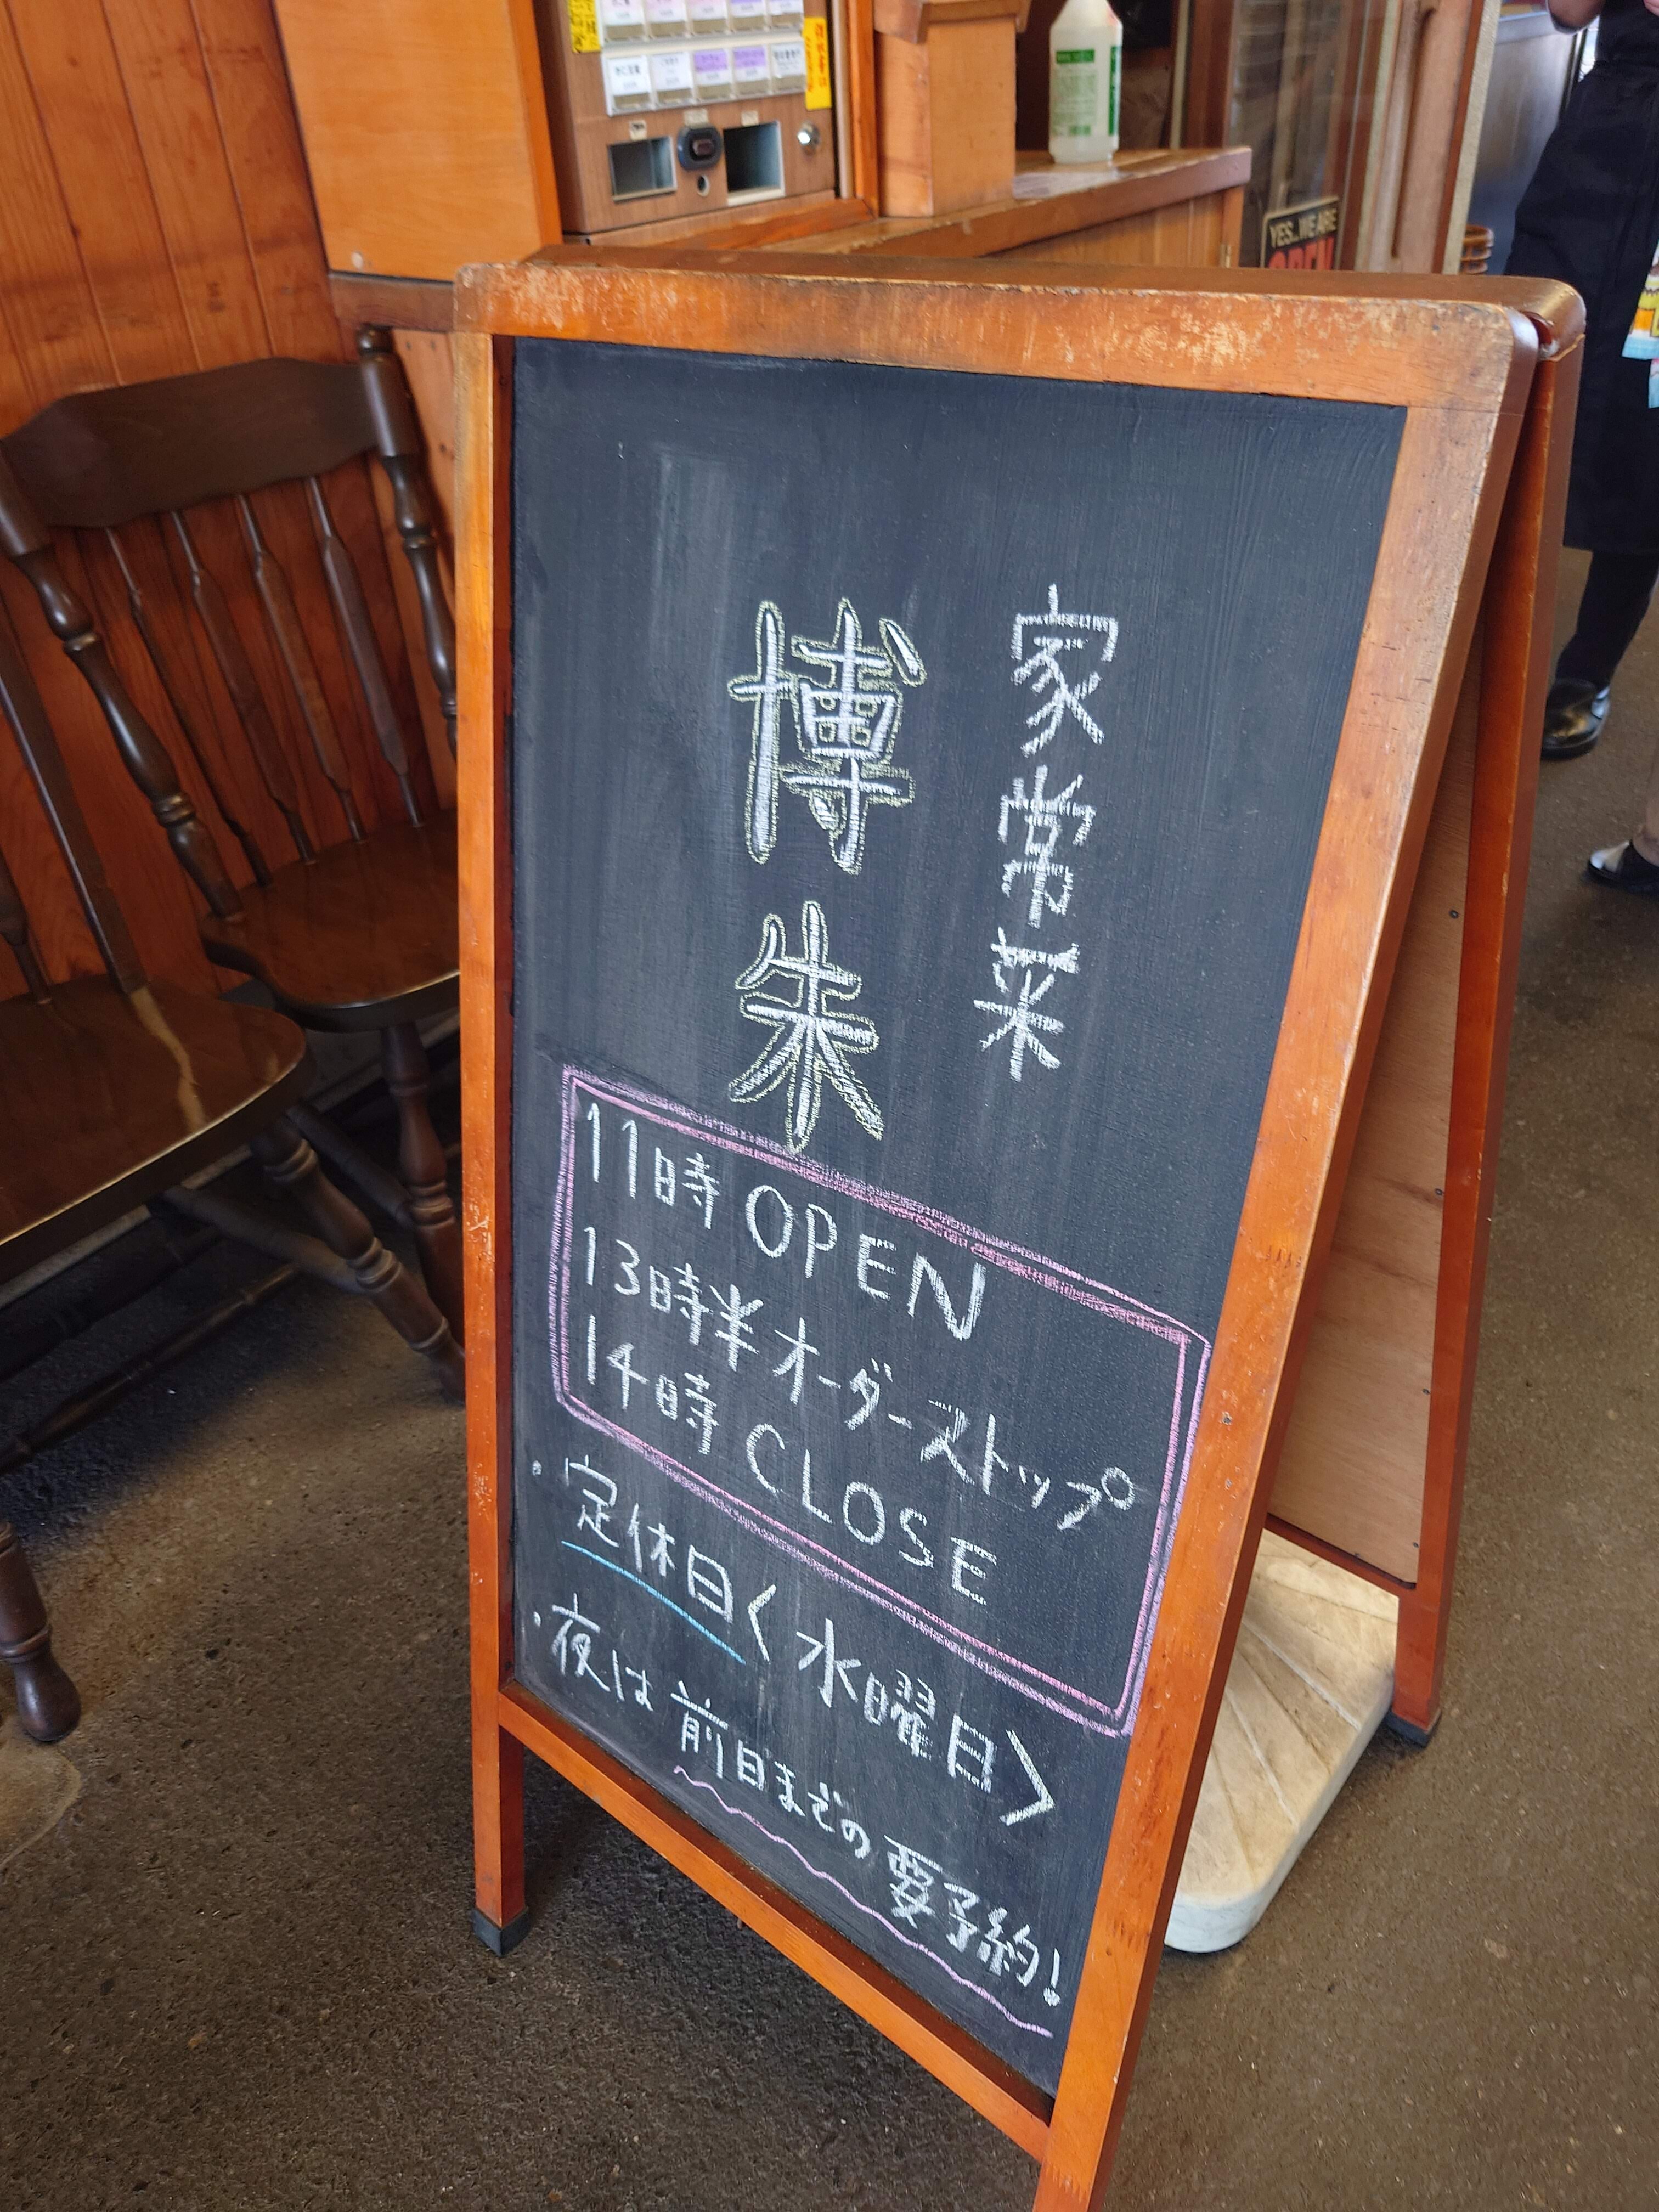 家常菜
博朱
11時 OPEN
13時半 オーダーストップ
14時 CLOSE
・定休日く 水曜日〉
・夜は前日までの要予約!
YES..WE ARE
OPEN